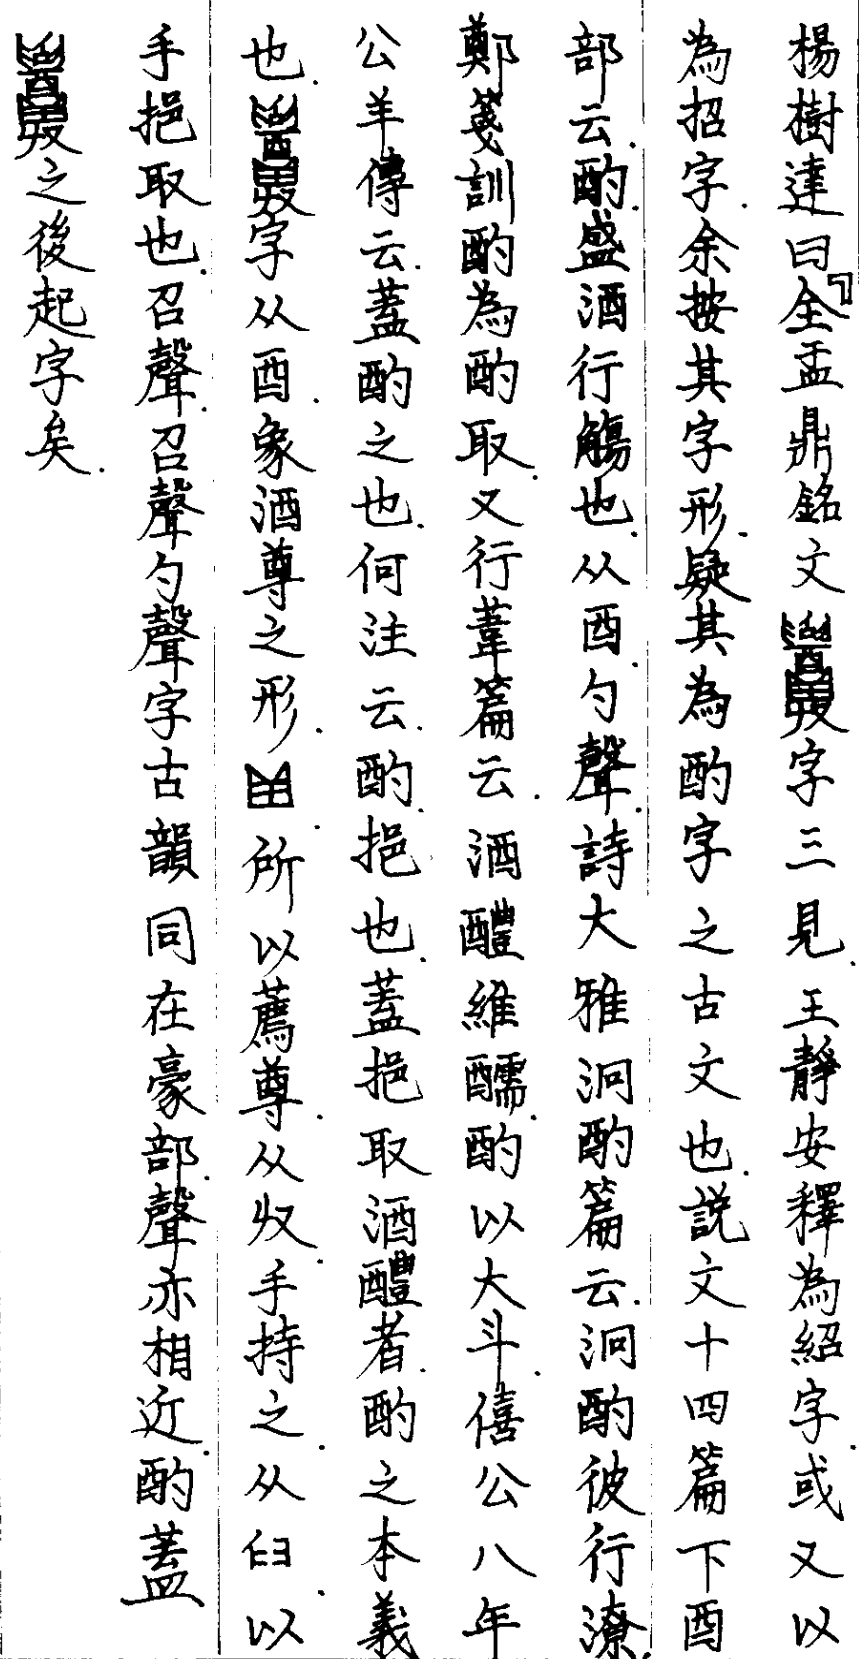 楊樹達曰『全盂鼎銘文字三見.王靜安釋為紹字或又以
為招字.余按其字形.疑其為酌字之古文也.說文十四篇下酉
部云.酌.盛酒行觴也.从酉.勺聲.詩大雅泂酌篇云.泂酌彼行潦.
鄭箋訓酌為酌取.又行葦篇云.酒醴維醹.酌以大斗.僖公八年
公羊傳云.蓋酌之也.何注云.酌挹也.蓋挹取酒醴者.酌之本義
也.字从酉.象酒尊之形.所以薦尊.从収.手持之.从臼.以
手挹取也.召聲.召聲勺聲字古韻同在豪部.聲亦相近.酌蓋
之後起字矣.